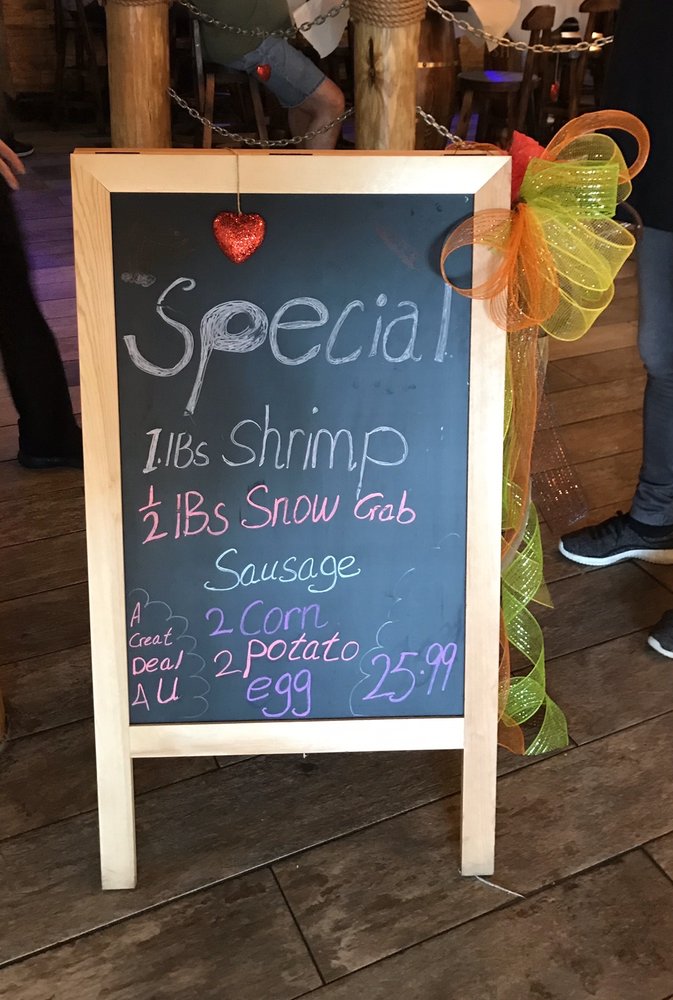 Special
1.lBs Shrimp
½ lBs Snow Crab
Sausage
2 Corn
2 potato
egg
A
Great
Deal
4 U
25.99